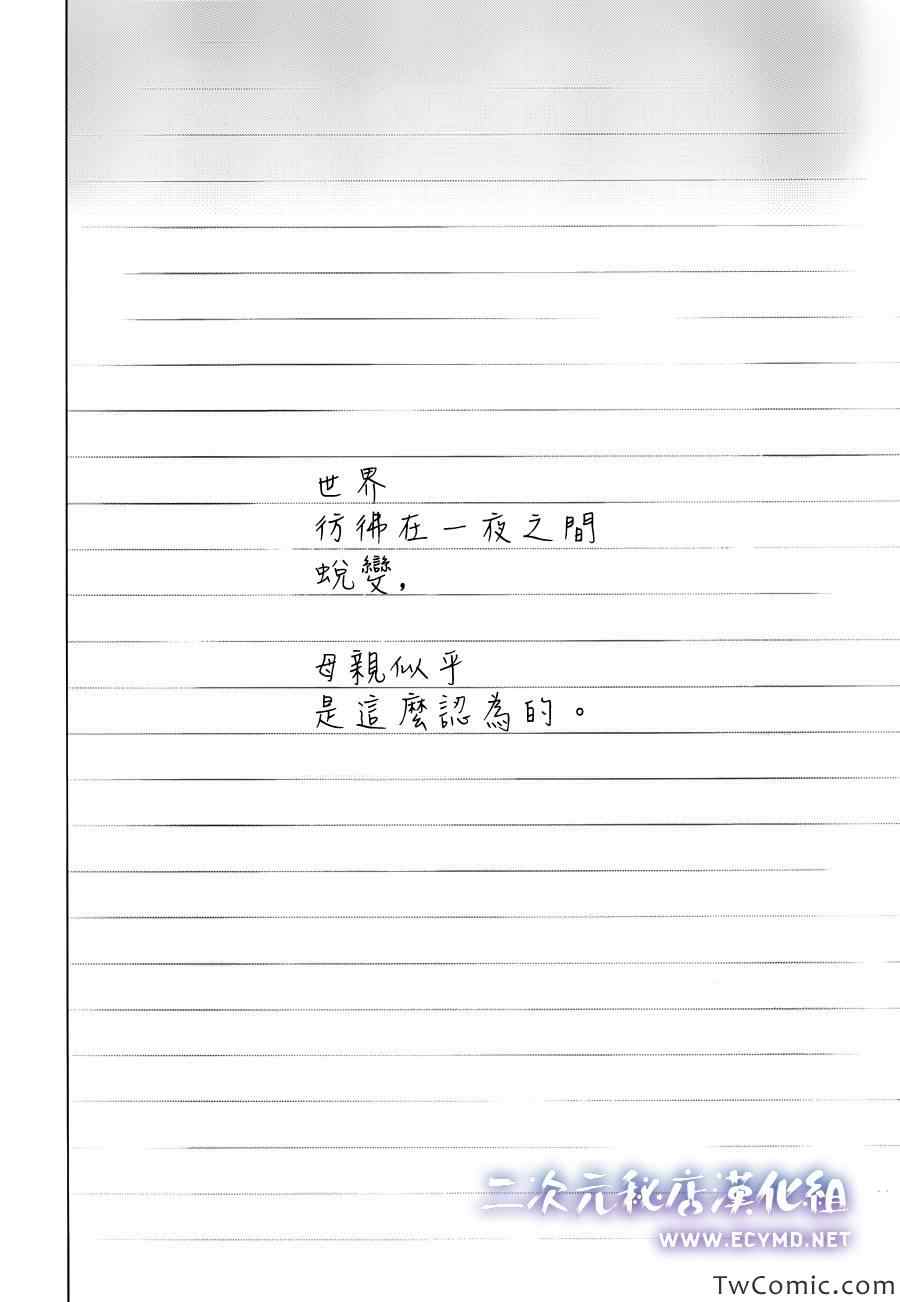 世界
彷彿在一夜之間
蛻變，
母親似乎
是這麼認為的。
二次元秘店漢化組
WWW.ECYMD.NET
TwComic.com